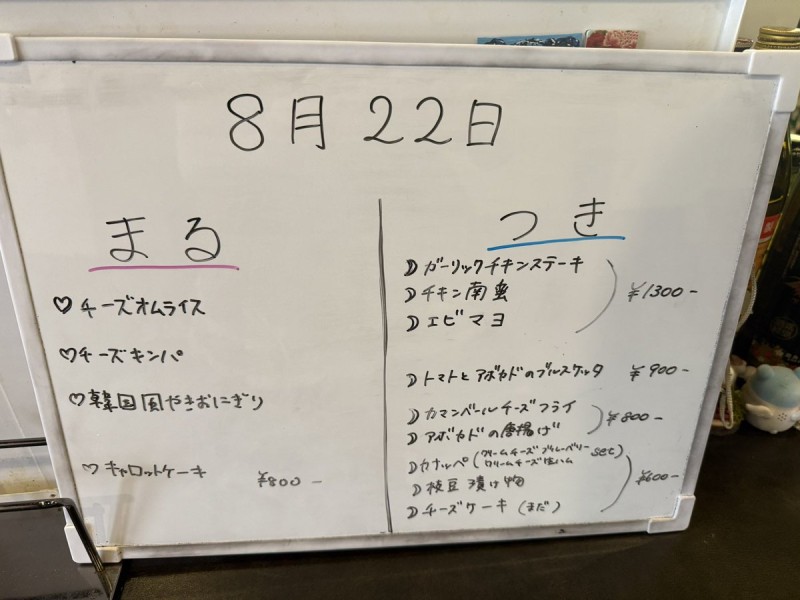 8月22日
まる
♡チーズオムライス
♡チーズキンパ
♡韓国風やきおにぎり
♡キャロットケーキ ¥800-
つき
☽ガーリックチキンステーキ
☽チキン南蛮
☽エビマヨ
¥1300-
☽トマトとアボカドのブルスケッタ ¥900-
☽カマンベールチーズフライ
☽アボカドの唐揚げ
¥800-
☽カナッペ(クリームチーズブルーベリー クリームチーズ生ハム set)
☽枝豆漬け物
☽チーズケーキ(まだ)
¥600-